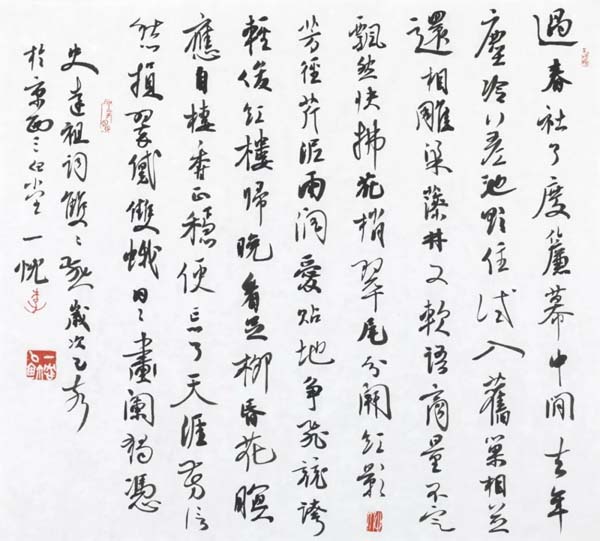 過春社了度簾幕中間去年
塵冷差池欲住试入舊巢相並
還相雕梁藻井又軟語商量不定
飄然快拂花梢翠尾分開紅影
芳徑芹泥雨润愛貼地争飛競誇
輕俊红樓歸晚看足柳昏花暝
應自棲香正穩便忘了天涯芳信
愁損翠黛雙蛾日〻畫闌獨憑
史達祖词雙〻燕歲次乙未
於京西三白堂一忱